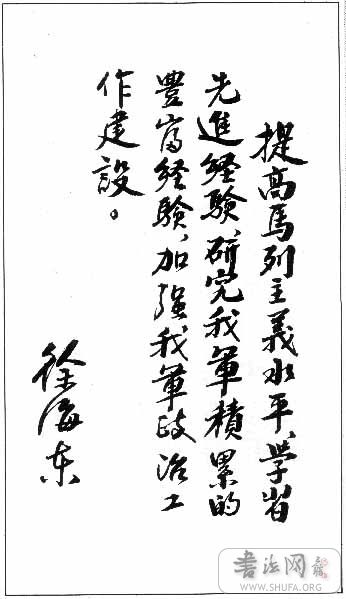 提高馬列主義水平、学習
先進経験、研究我軍積累的
豊富経験、加強我軍政治工
作建設。
徐海东
书法网
WWW.SHUFA.ORG